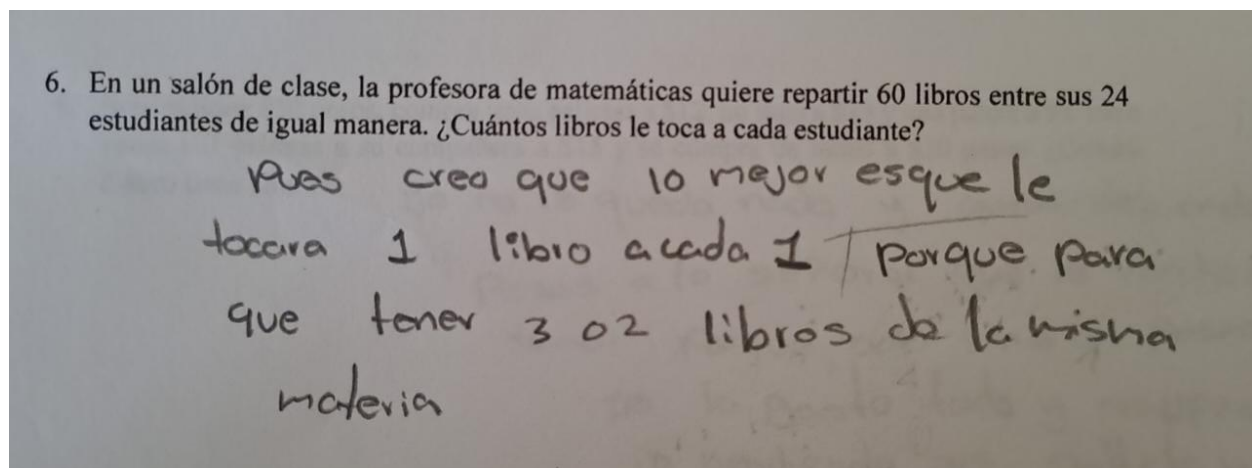 6. En un salón de clase, la profesora de matemáticas quiere repartir 60 libros entre sus 24
estudiantes de igual manera. ¿Cuántos libros le toca a cada estudiante?
Pues creo que lo mejor esque le
tocara 1 libro a cada 1 porque para
que tener 3 o 2 libros de la misma
materia